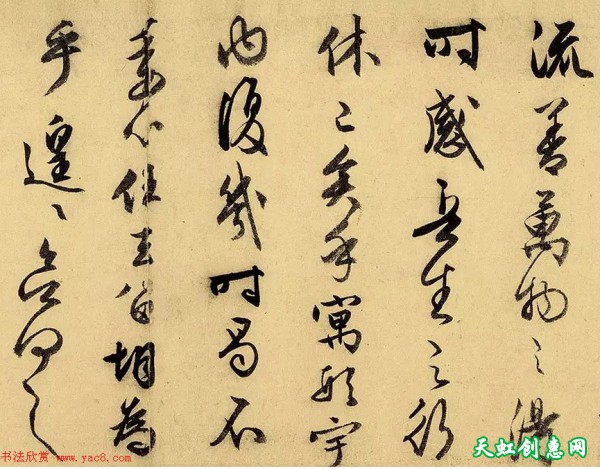 流善萬物之得
時感吾生之行
休已矣乎寓形宇
內復幾時曷不
委心任去留胡為
乎遑〻欲何之
书法欣赏 www.yac8.com
天虹创惠网